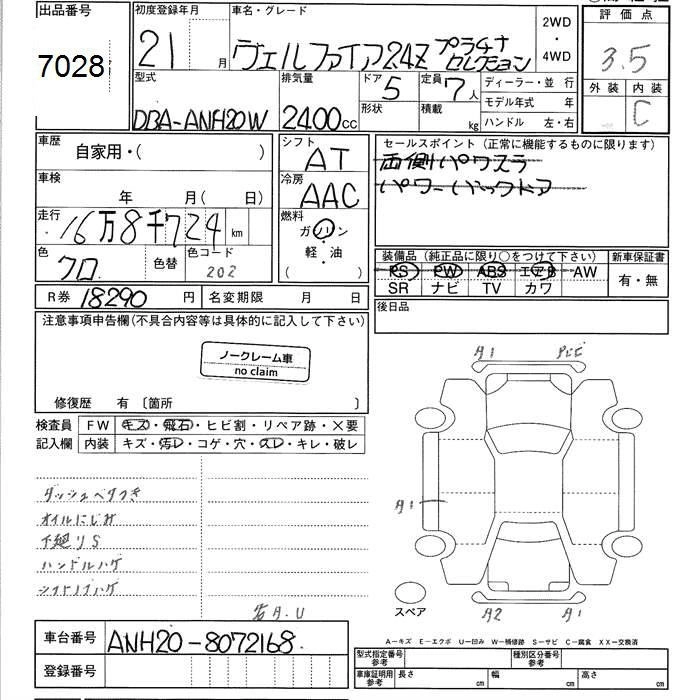 出品番号
7028
初度登録年月
21 月
車名・グレード
ヴェルファイア2.4Z プラチナセレクション
2WD
・
4WD
評価点
3.5
外装 内装
C
型式
DBA-ANH20W
排気量
2400cc
ドア
5
形状
定員
7人
積載
kg
ディーラー・並 行
モデル年式 年
ハンドル 左・右
車歴
自家用・( )
車検
年 月( 日)
走行
16万8千724 km
色
クロ
色替
色コード
202
シフト
AT
冷房
AAC
燃料
ガソリン
・
軽・油
( )
セールスポイント(正常に機能するものに限ります)
両側パワスラ
パワーバックドア
装備品(純正品に限り○をつけて下さい)
PS PW ABS エアB AW
SR ナビ TV カワ
新車保証書
有・無
R券 18290 円
名変期限 月 日
後日品
注意事項申告欄(不具合内容等は具体的に記入して下さい)
ノークレーム車
no claim
修復歴 有 〔箇所 〕
検査員
記入欄
FW キズ・飛石・ヒビ割・リペア跡・×要
内装 キズ・汚レ・コゲ・穴・スレ・キレ・破レ
ダッシュベタつき
オイルにじみ
下廻りS
ハンドルハゲ
シフトノブハゲ
若A.U
A1
A1
A2 A1
スペア
A-キズ E-エクボ U-凹み W-補修跡 S-サビ C-腐食 XX-交換済
車台番号
ANH20-8072168
登録番号
型式指定番号
参考
種別区分番号
参考
車庫証明用
参考
長さ cm
幅 cm
高さ cm